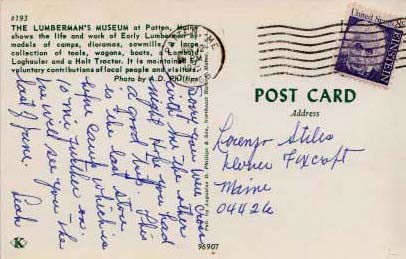 #193
THE LUMBERMAN'S MUSEUM at Patten, Maine
shows the life and work of Early Lumbermen by
models of camps, dioramas, sawmills, a large
collection of tools, wagons, boats, a Lombard
Loghauler and a Holt Tractor. It is maintained by
voluntary contributions of local people and visitors.
Photo by A.D. Phillips
ME
United States
EINSTEIN
POST CARD
Address
Lorenzo Stiles
Dover Foxcroft
Maine
04426
with me the other
night. Hope you had
a good hunt. This
is the last store
before camp which is
10 mi further on.
we will see you the
last of June.
Leah
K
96907